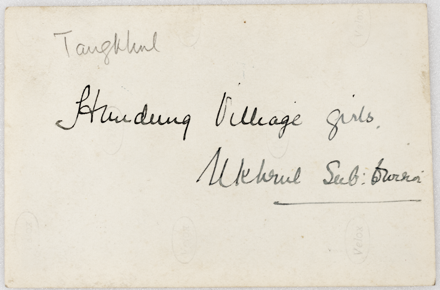 Tangkhul
Hundung Village girls.
Ukhrul Sub:
Velox